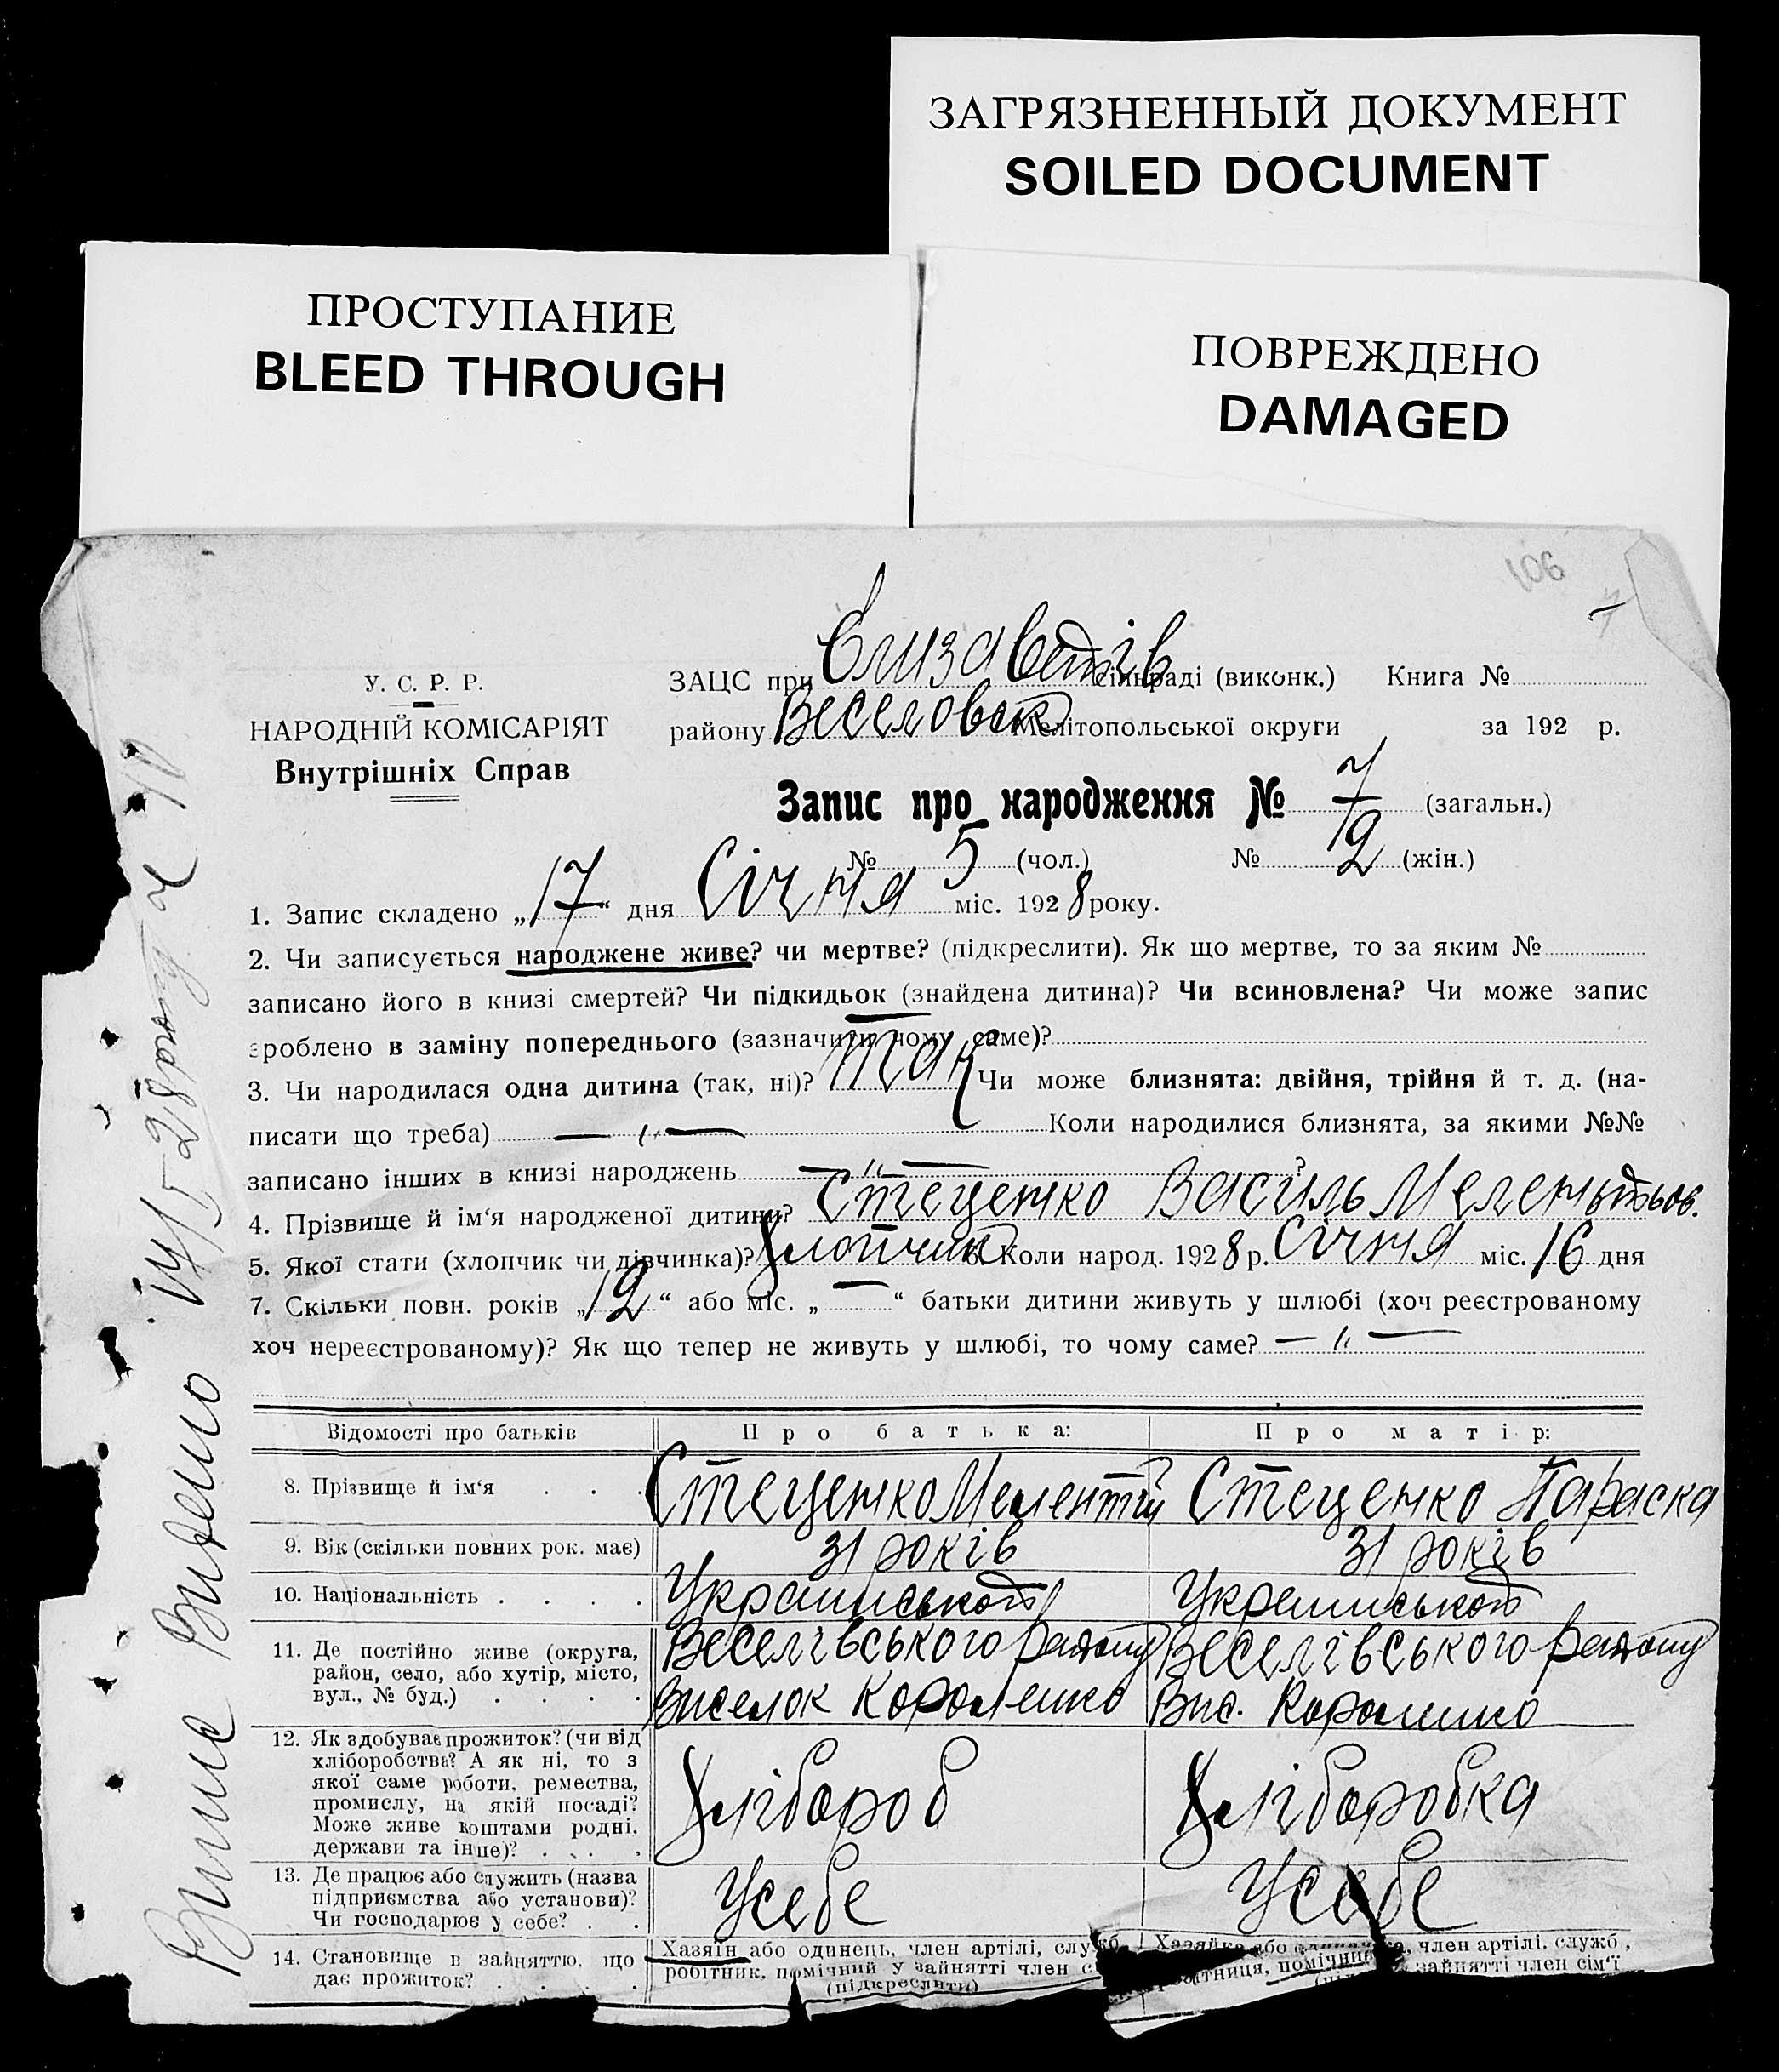 ЗАГРЯЗНЕННЫЙ ДОКУМЕНТ
SOILED DOCUMENT
ПРОСТУПАНИЕ
BLEED THROUGH
ПОВРЕЖДЕНО
DAMAGED
106
7
У. С. Р. Р.
НАРОДНІЙ КОМІСАРІЯТ
Внутрішніх Справ
ЗАЦС при Єлизаветів сільраді (виконк.) Книга №
району Веселовськ Мелітопольської округи за 192 р.
Запис про народження № 7 (загальн.)
№ 5 (чол.) № 2 (жін.)
1. Запис складено „17“ дня Січня міс. 1928 року.
2. Чи записується народжене живе? чи мертве? (підкреслити). Як що мертве, то за яким №
записано його в книзі смертей? Чи підкидьок (знайдена дитина)? Чи всиновлена? Чи може запис
зроблено в заміну попереднього (зазначити чому саме)?
3. Чи народилася одна дитина (так, ні)? Так Чи може близнята: двійня, трійня й т. д. (на-
писати що треба) — „ — Коли народилися близнята, за якими №№
записано інших в книзі народжень — „ — ?
4. Прізвище й ім'я народженої дитини? Стеценко Василь Мелентьов.
5. Якої стати (хлопчик чи дівчинка)? Хлопчик 6. Коли народ. 1928 р. Січня міс. 16 дня
7. Скільки повн. років „12“ або міс. „—“ батьки дитини живуть у шлюбі (хоч реєстрованому
хоч нереєстрованому)? Як що тепер не живуть у шлюбі, то чому саме? — „ —
Відомості про батьків Про батька: Про матір:
8. Прізвище й ім'я . . . Стеценко Мелентій Стеценко Параска
9. Вік (скільки повних рок. має) 31 років 31 років
10. Національність . . . . Української Української
11. Де постійно живе (округа,
район, село, або хутір, місто,
вул., № буд.) . . . .
Веселівського району
Виселок Короленко
Веселівського району
Вис. Короленко
12. Як здобуває прожиток? (чи від
хліборобства? А як ні, то з
якої саме роботи, ремества,
промислу, на якій посаді?
Може живе коштами родні,
держави та інше)? . . . .
Хлібороб
Хліборобка
13. Де працює або служить (назва
підприємства або установи)?
Чи господарює у себе? . .
У себе
У себе
14. Становище в зайняттю, що
дає прожиток? . . . .
Хазяїн або одинець, член артілі, служб.
робітник, помічний у зайнятті член
(підкреслити)
Хазяйка або , член артілі, служб.,
помічний зайнятті член сім'ї